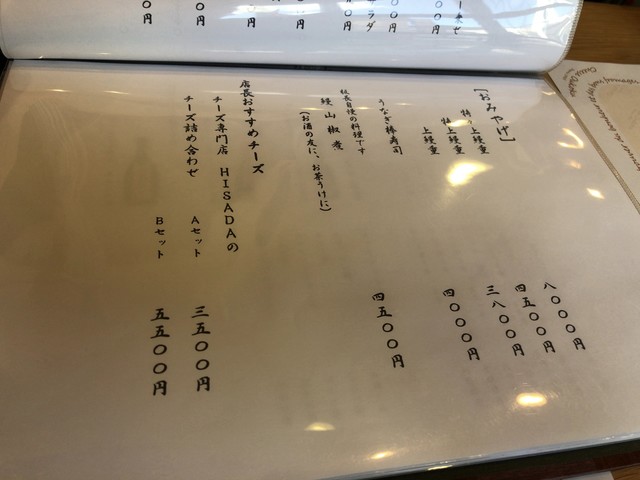 [おみやげ]
上鰻重
八〇〇〇円
特上鰻重
四五〇〇円
上鰻重
三八〇〇円
うなぎ棒寿司
四〇〇〇円
板長自慢の料理です
鰻山椒煮
四五〇〇円
(お酒の友に、お茶うけに)
店長おすすめチーズ
チーズ専門店 HISADAの
チーズ詰め合わせ Aセット 三五〇〇円
Bセット 五五〇〇円